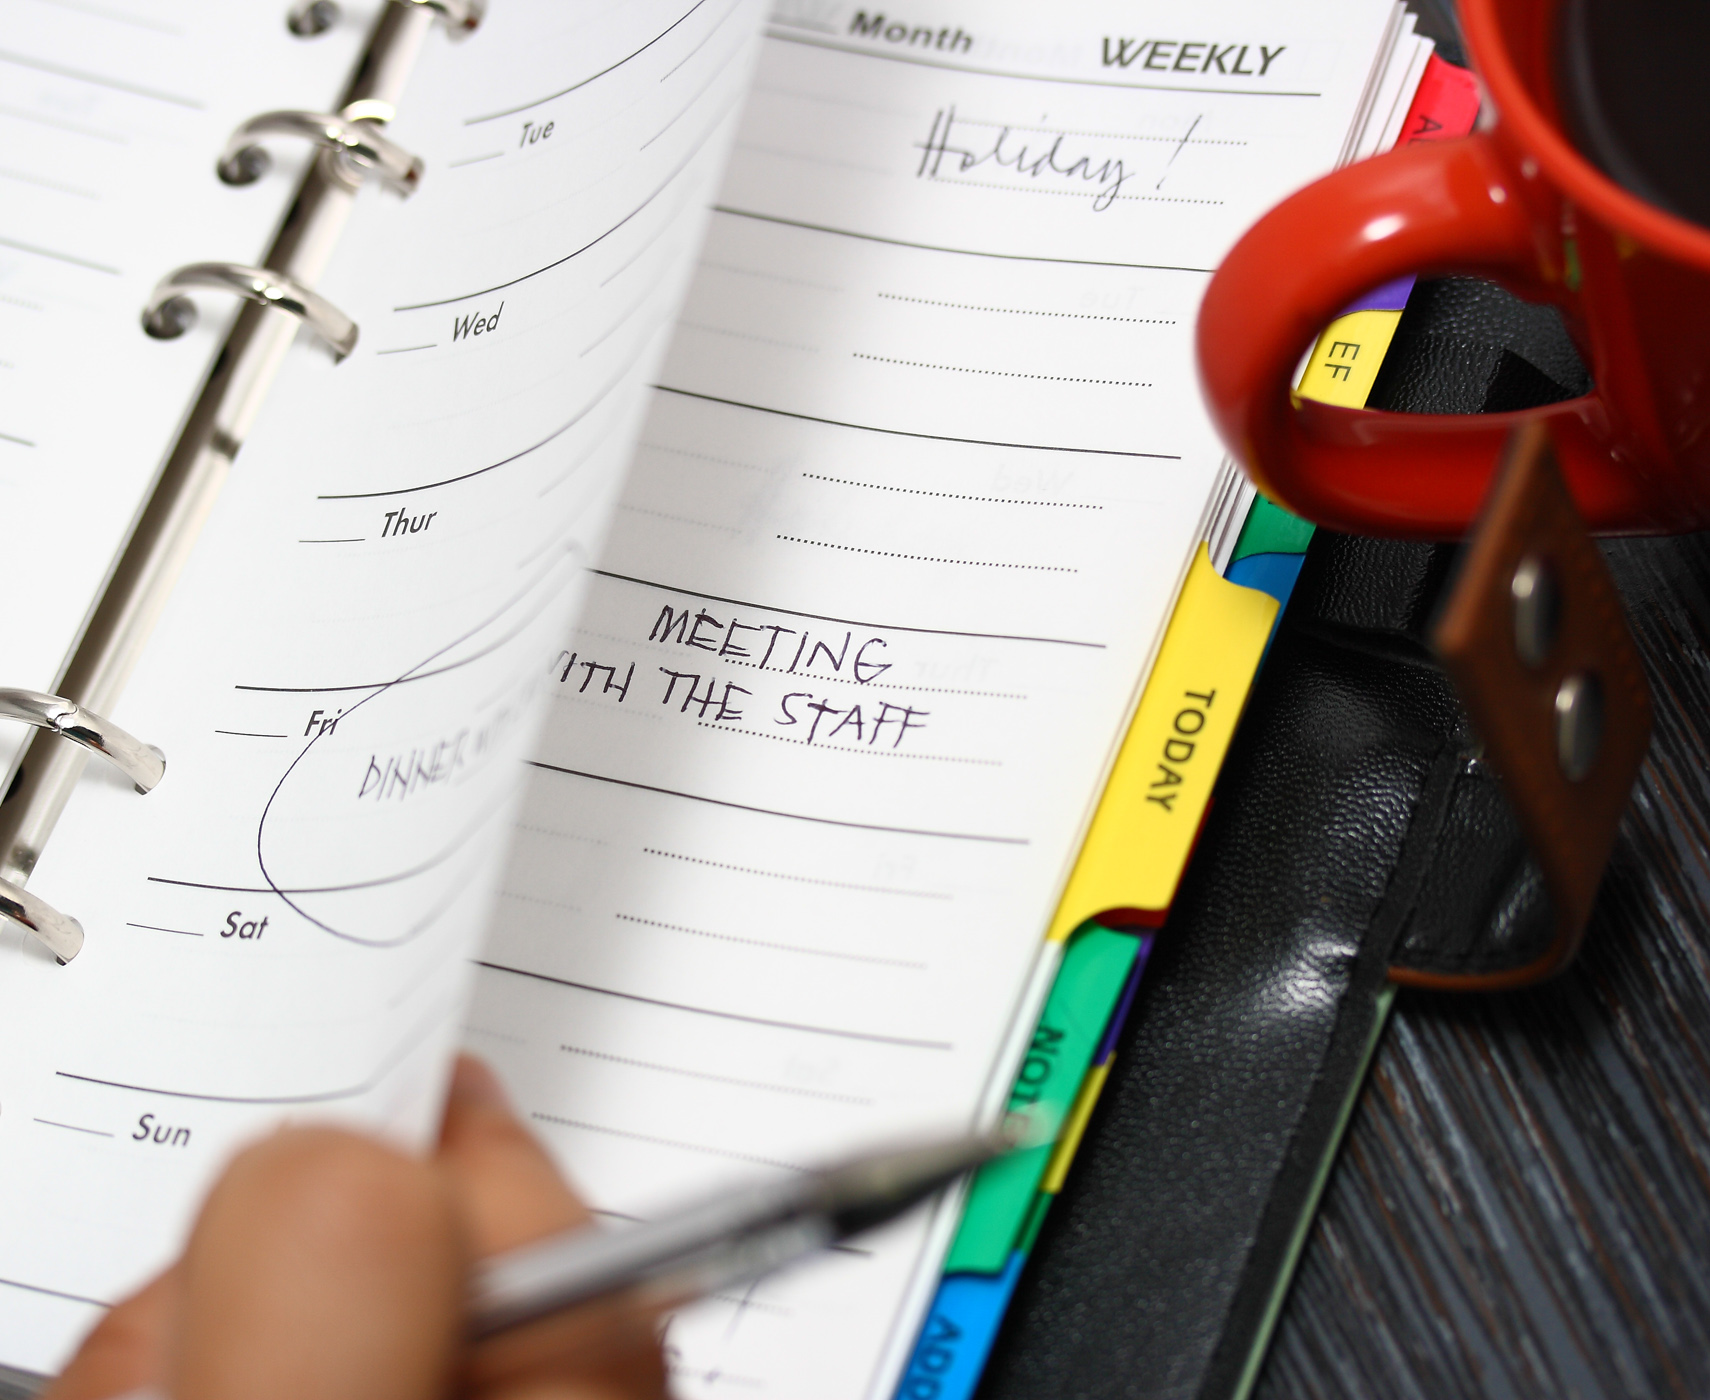 Tue
Wed
Thur
Fri
DINNER
Sat
Sun
Month WEEKLY
Holiday!
MEETING
WITH THE STAFF
EF
TODAY
NOTES